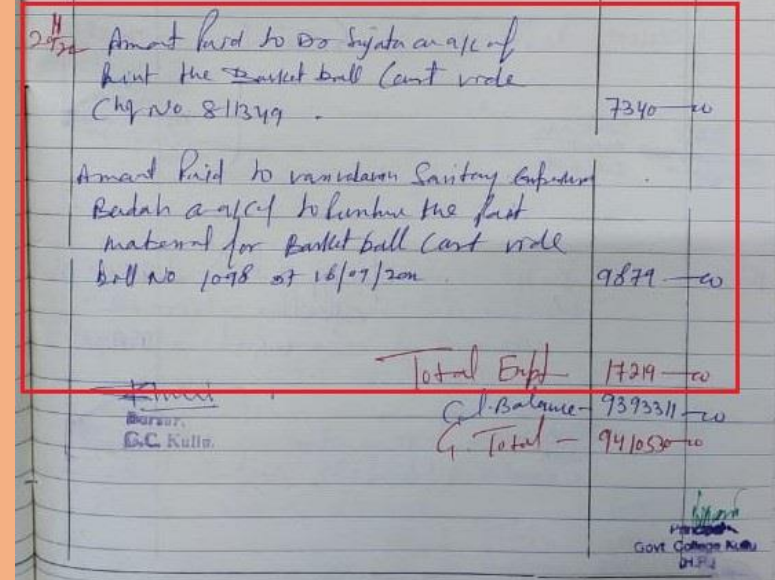 Amant Paid to Do Sujata on a/c of
Paint the Basket ball Cant vide
Chq No 811349 . 7340 —00
Amant Paid to Sanitary
Badah a a/c of to the
material for Basket ball Cant vide
bill No 1098 9879 —00
Total Expt 17219 —00
Cl. Balance - 9393311 —00
G. Total - 9410530 —00
Bursar,
G.C. Kullu.
Principal
Govt College Kullu
(H.P.)